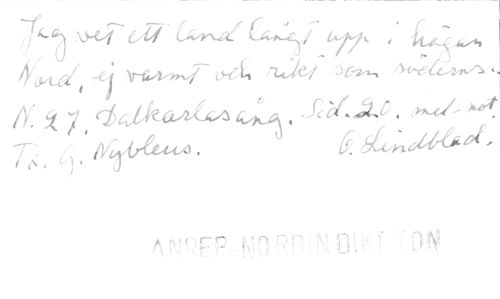 Jag vet ett land långt upp i högan
Nord, ej varmt och rikt som söderns.
N. 27. Dalkarlasång. Sid. 20. med not.
G. Nyblæus. O. Lindblad.
ANREP-NORDIN